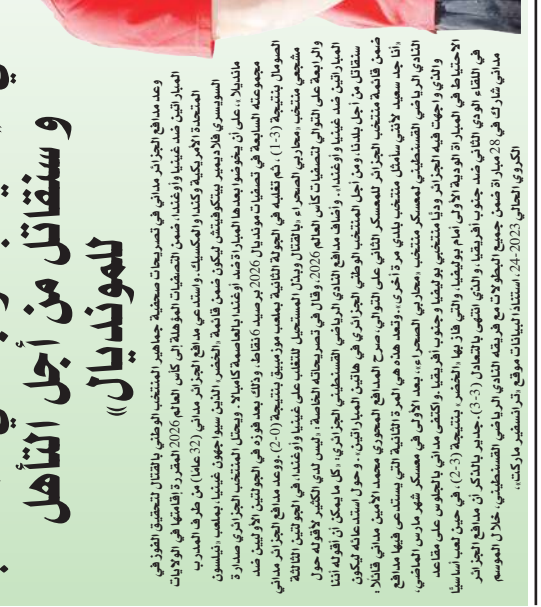 و سنقاتل من أجل التأهل
للمونديال»
وعد مدافع الجزائر مداني في تصريحات صحفية جماهير المنتخب الوطني بالقتال لتحقيق الفوز في
المباراتين ضد غينيا وأوغندا، ضمن التصفيات المؤهلة إلى كأس العالم 2026 المقررة إقامتها في الولايات
المتحدة الأمريكية وكندا والمكسيك. واستدعي مدافع الجزائر مداني (32 عاما) من طرف المدرب
السويسري فلاديمير بيتكوفيتش ليكون ضمن قائمة «الخضر» الذين سيواجهون غينيا، بملعب «نيلسون
مانديلا»، على أن يخوضوا بعدها المباراة ضد أوغندا بالعاصمة كامبالا. ويحتل المنتخب الجزائري صدارة
مجموعته السابعة في تصفيات مونديال 2026 برصيد 6 نقاط، وذلك بعد فوزه في الجولتين الأوليين ضد
الصومال بنتيجة (3-1)، ثم تغلبه في الجولة الثانية بملعب موزمبيق بنتيجة (0-2). ووعد مدافع الجزائر مداني
مشجعي منتخب «محاربي الصحراء»، بالقتال وبذل المستحيل للتغلب على غينيا وأوغندا، في الجولتين الثالثة
والرابعة على التوالي لتصفيات كأس العالم 2026. وقال في تصريحاته الخاصة: «ليس لدي الكثير لأقوله حول
المباراتين ضد غينيا وأوغندا». وأضاف مدافع النادي الرياضي القسنطيني الجزائري: «كل ما يمكن أن أقوله أننا
سنقاتل من أجل بلدنا، ومن أجل المنتخب الوطني الجزائري في هاتين المباراتين». وحول استدعائه ليكون
ضمن قائمة منتخب الجزائر للمعسكر الثاني على التوالي، صرح المدافع المحوري محمد الأمين مداني قائلا:
«أنا جد سعيد لأنني سأمثل منتخب بلدي مرة أخرى». وتعد هذه هي المرة الثانية التي يستدعى فيها مدافع
النادي الرياضي القسنطيني لمعسكر منتخب «محاربي الصحراء»، بعد الأولى في معسكر شهر مارس الماضي،
والذي واجهت فيه الجزائر وديًا منتخبي بوليفيا وجنوب أفريقيا. واكتفى مداني بالجلوس على مقاعد
الاحتياط في المباراة الودية الأولى أمام بوليفيا، والتي فاز بها «الخضر» بنتيجة (3-2)، في حين لعب أساسيًا
في اللقاء الودي الثاني ضد جنوب أفريقيا، والذي انتهى بالتعادل (3-3). جدير بالذكر أن مدافع الجزائر
مداني شارك في 28 مباراة ضمن جميع البطولات مع فريقه النادي الرياضي القسنطيني، خلال الموسم
الكروي الحالي 2023-24، استنادا لبيانات موقع «ترانسفير ماركت».